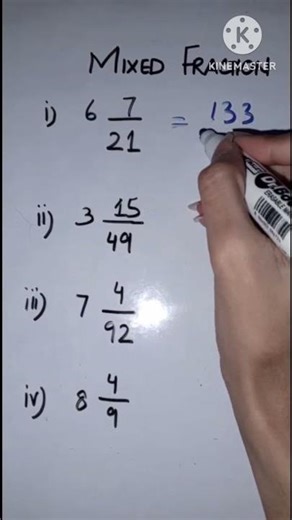 KINEMASTER
MIXED FRACTION
i) 6 7/21 = 133
ii) 3 15/49
iii) 7 4/92
iv) 8 4/9